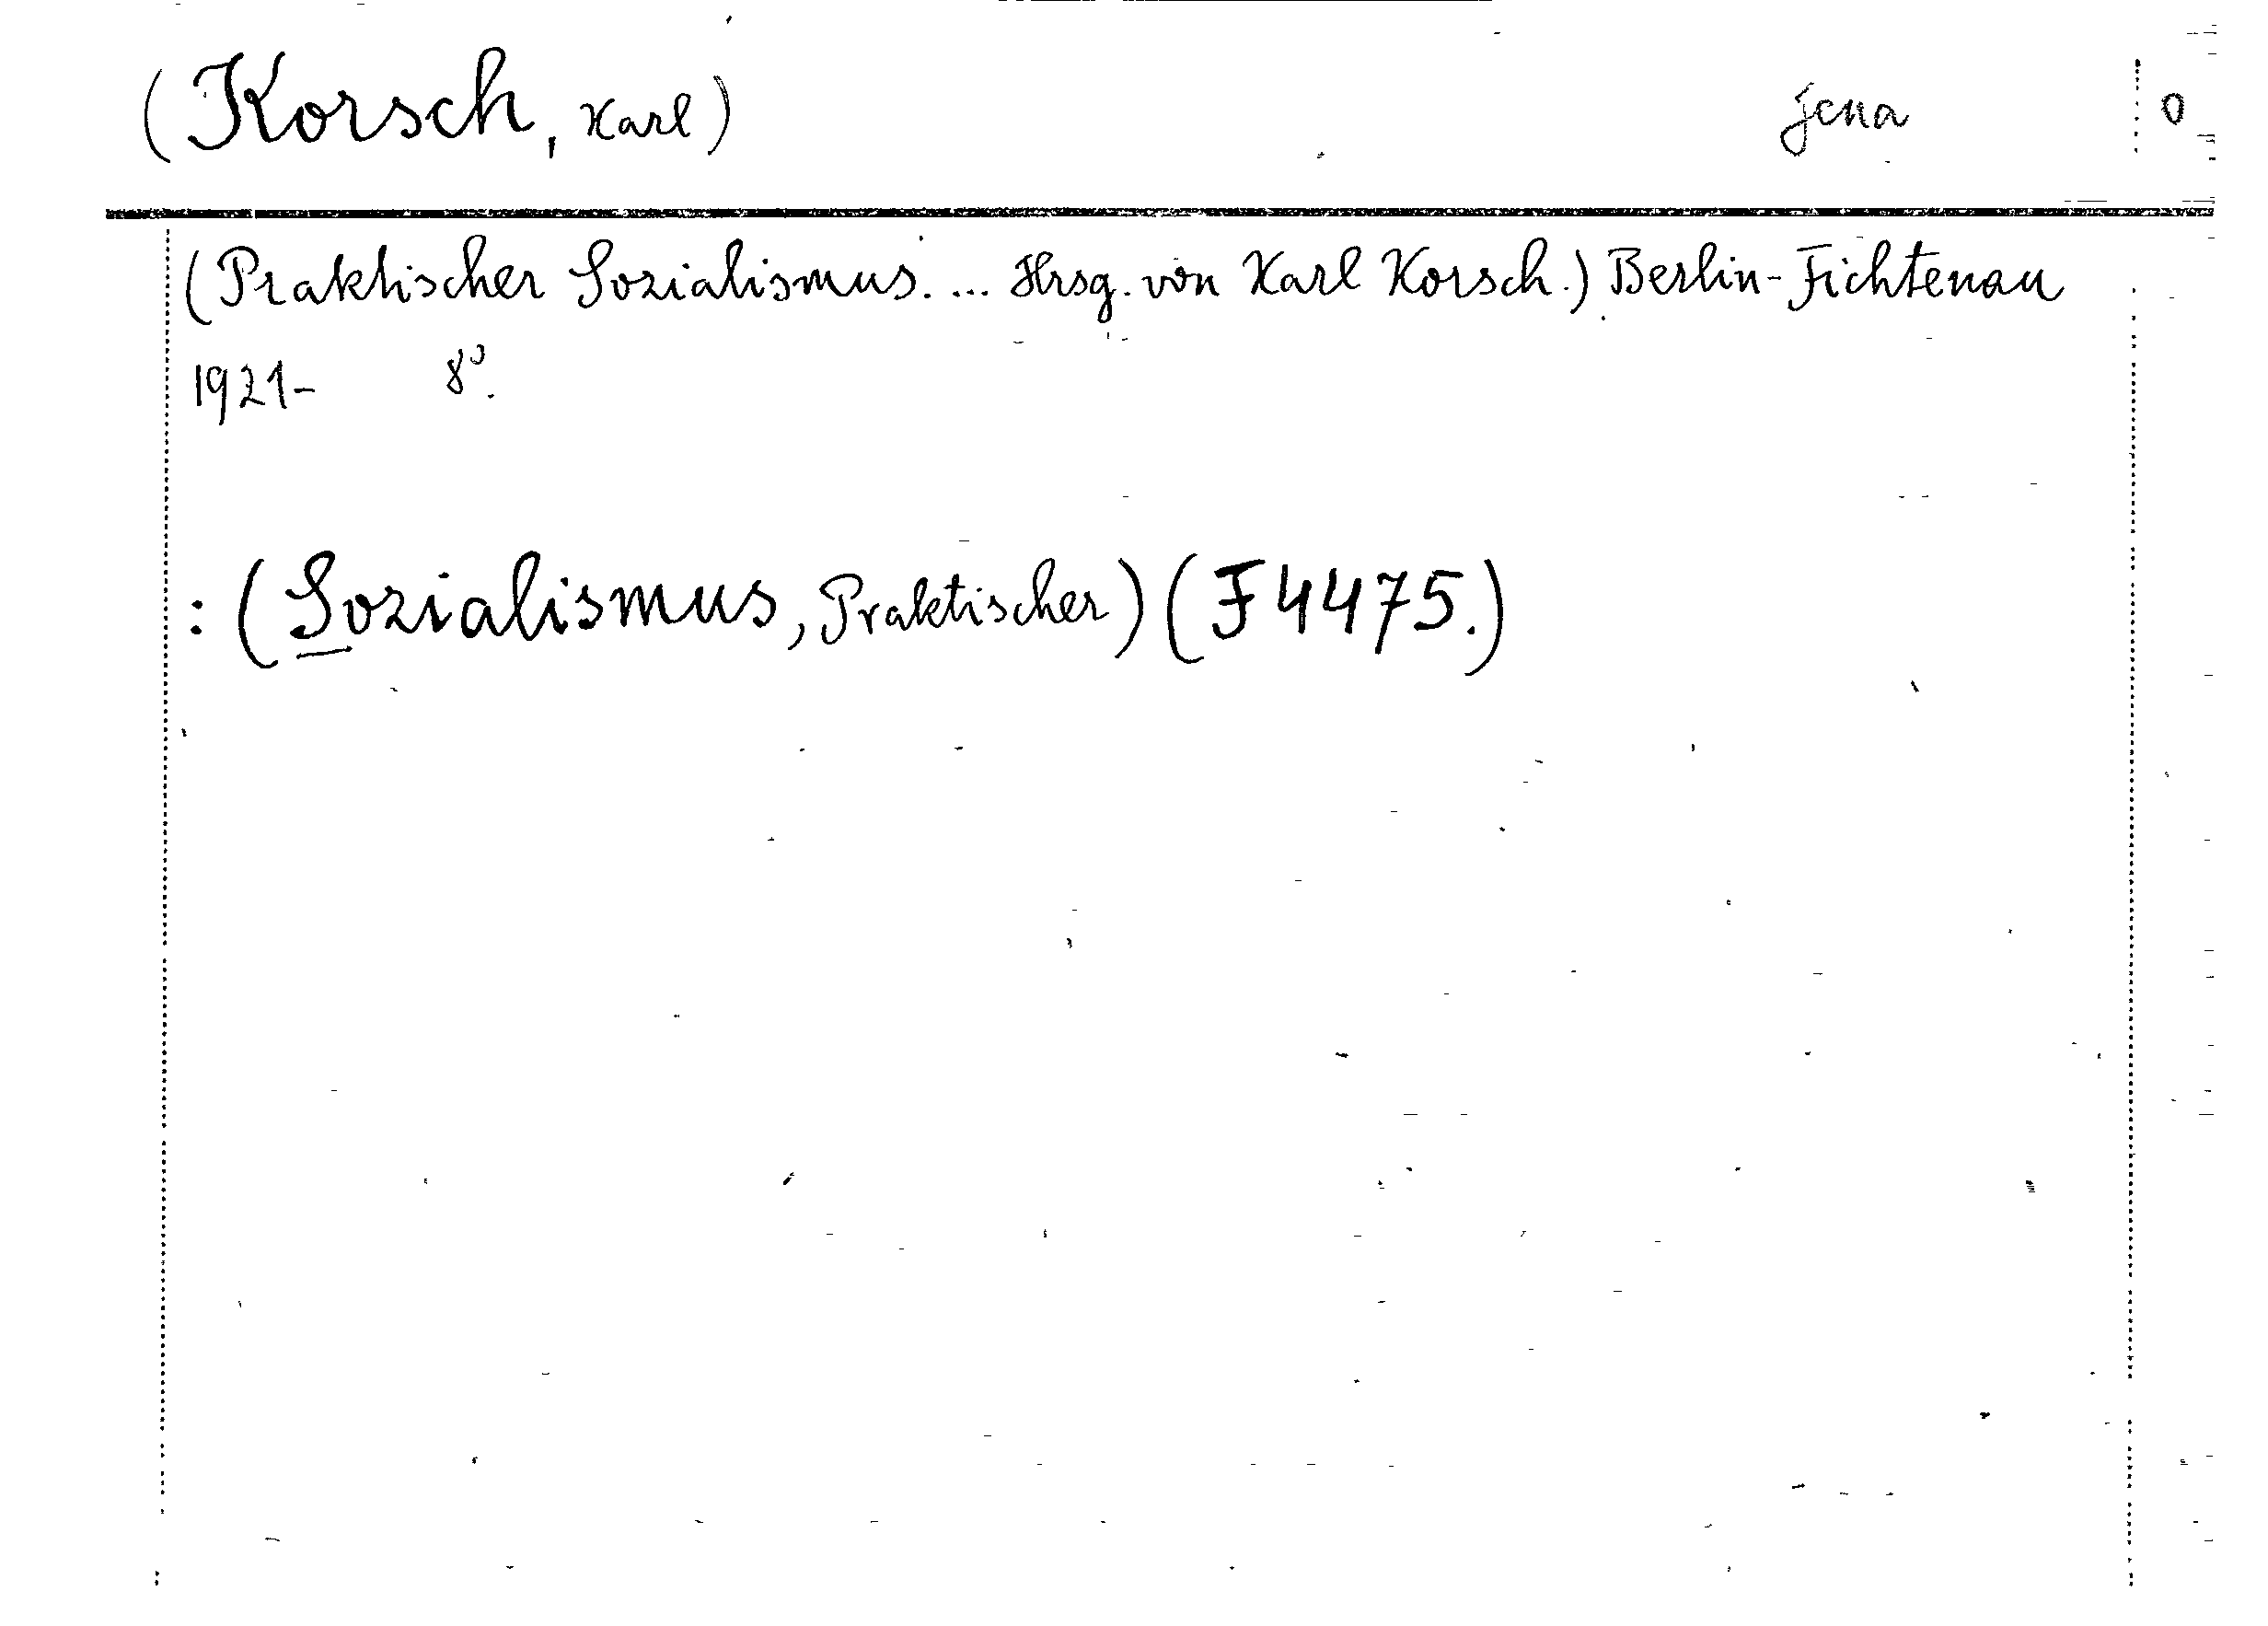 (Korsch, Karl) Jena 0
(Praktischer Sozialismus. ... Hrsg. von Karl Korsch.) Berlin-Fichtenau
1921- 8°.
: (Sozialismus, Praktischer) (F 4475.)